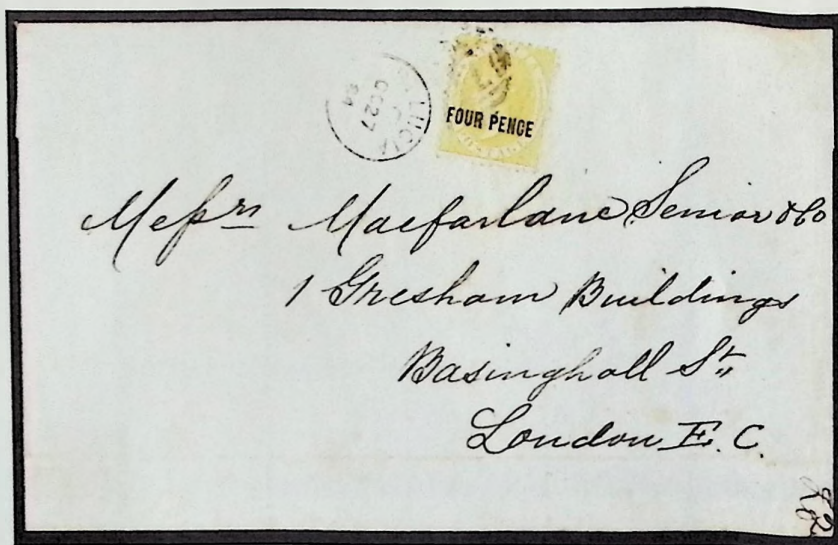 LUCIA
OC 27
84
FOUR PENCE
Messrs Macfarlane, Senior & Co
1 Gresham Buildings
Basinghall St,,
London E. C.